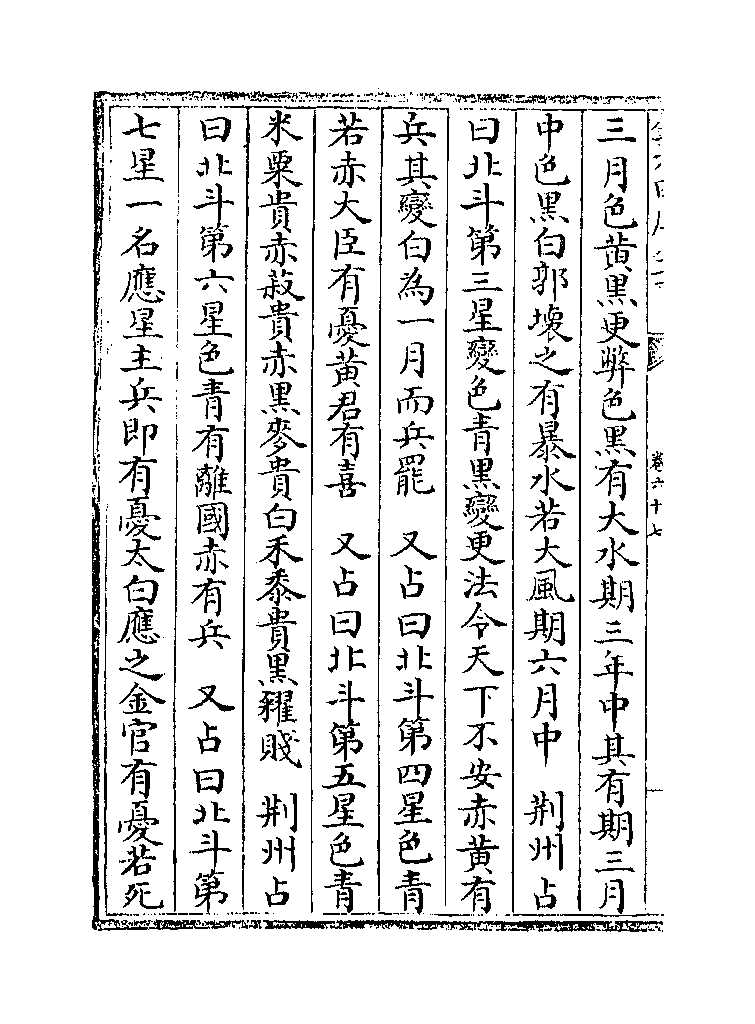 三月色黄黒更弊色黒有大水期三年中其有期三月
中色黒白郭壊之有暴水若大風期六月中　荆州占
曰北斗第三星變色青黒變更法令天下不安赤黄有
兵其變白為一月而兵罷　又占曰北斗第四星色青
若赤大臣有憂黄君有喜　又占曰北斗第五星色青
米粟貴赤菽貴赤黒麥貴白禾黍貴黒糴賤　荆州占
曰北斗第六星色青有離國赤有兵　又占曰北斗第
七星一名應星主兵即有憂太白應之金官有憂若死
卷六十七